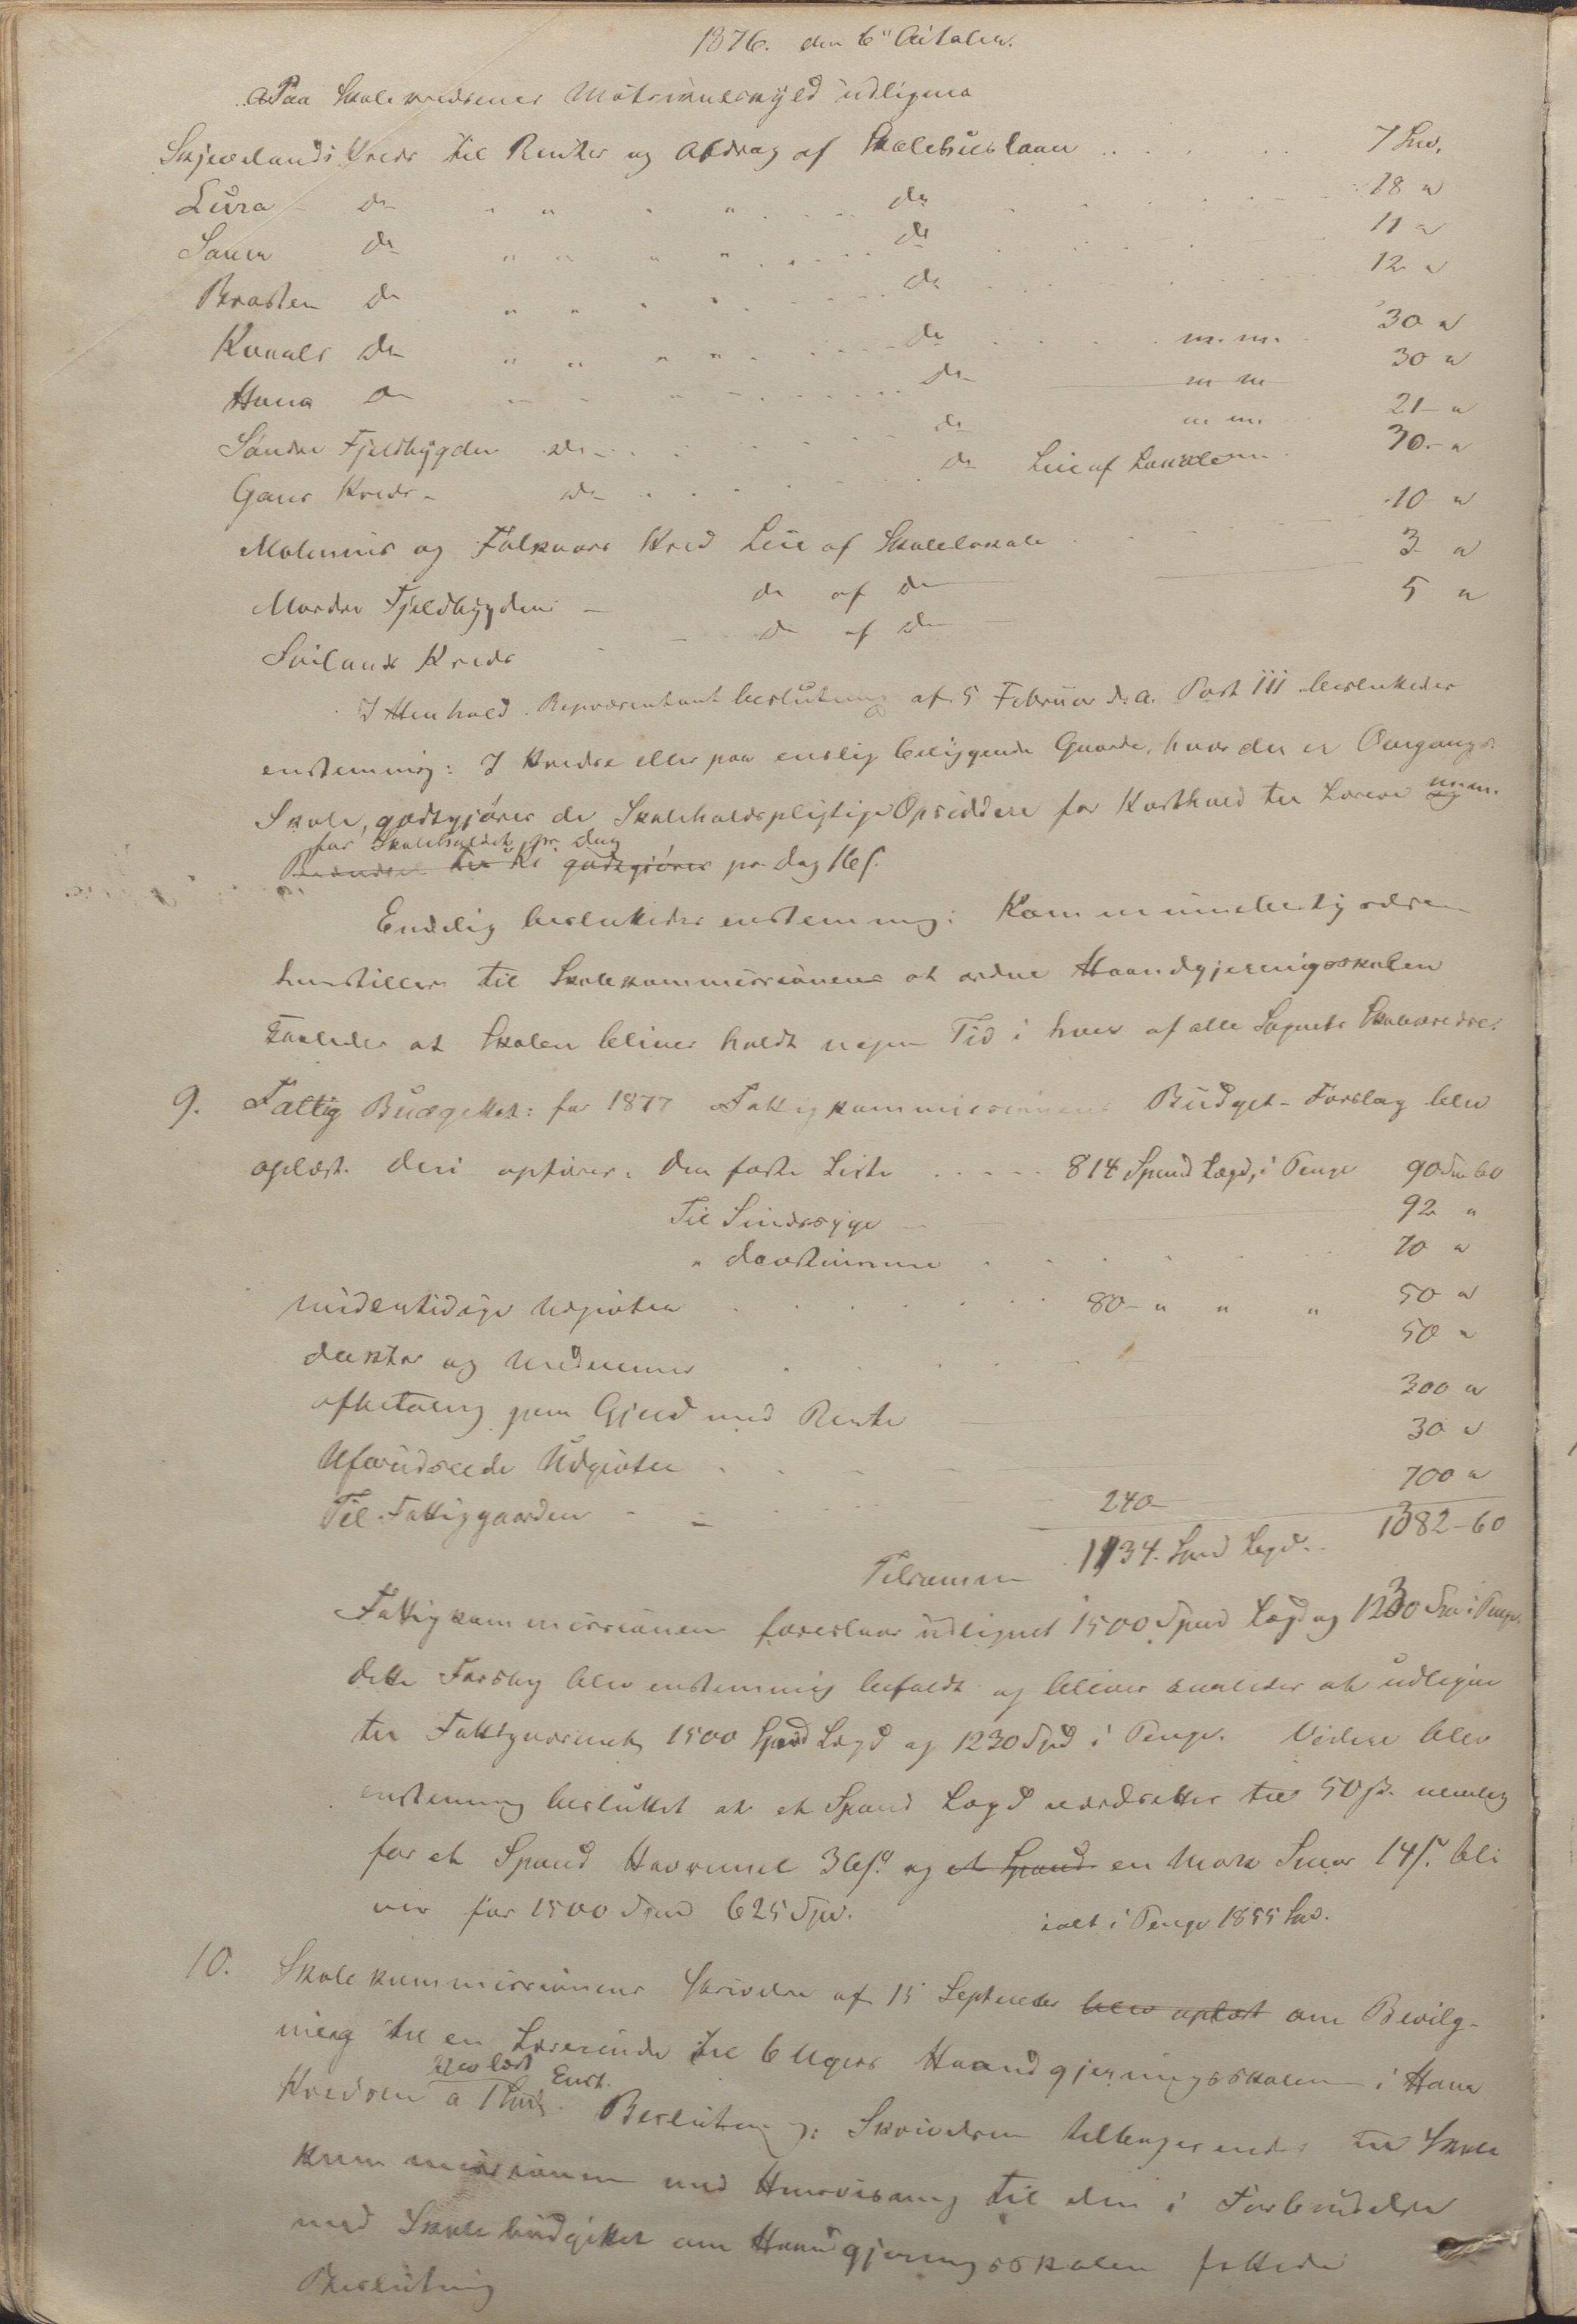 1876. den 6" Octobr.
a Paa Skolekredsenes Matrikulskyld udlignes
Skjævelands Kreds til Renter og Afdrag af Skolehuslaan . . . . . 7 Spd.
Lura do " " " " do 18 "
Sørbø do " " " " do 11 "
Braasten do " " " " do 12 "
Kvaals do " " " " do m.m. 30 "
Hana do " " " " do m m 30 "
Søndre Fjeldbygden do do m m. 21 "
Gans Kreds do do Leie af Lokale m. 30 "
Malmeis og Folkvors Kred Leie af Skolelokale 10 "
Nordre Fjeldbygden – do af do 3 "
Sviland Kreds – do af do 5 "
I Henhold Repræsentantbeslutning af 5 Februar d.a. Post III besluttedes
enstemmig: I Kredse eller paa enslig beliggende Gaarde, hvor der er Omgangs
Skole, godtgjøres de Skoleholdspligtige Opsiddere for Kosthold til Lærere m.m.
for Skoleholdet pr. dag
Brændsel til godtgjøres pr. dag 16 s.
Endelig besluttedes enstemmig: Kommunebestyrelsen
henstiller til Skolekommissionen at ordne Haandgjerningsskolen
saaledes at Skolen bliver holdt nogen Tid i hver af alle Sognets Skolekredse.
9. Fattig Budgettet: for 1877 Fattigkommissionens Budget-Forslag blev
oplæst. deri opføres: den faste Liste . . . . . 814 Spand Lægd, i Penge 90 Spd 60
Til Sindssyge 92 "
" døvstumme 70 "
midlertidige Udgivter . . . . . 80 – " " " 50 "
doktor og Medicin 50 "
afbetaling paa Gjæld med Rente 300 "
Uforudseede Udgivter 30 "
Til Fattiggaarden 240 – 700 "
Tilsammen 1134. Spd Lægd. 1382–60
Fattigkommissionen foreslaar udlignet 1500 Spand Lægd og 1230 Spd i Penge.
dette Forslag blev enstemmig bifaldt og bliver saaledes at udligne
til Fattigvæsenet 1500 Spand Lægd og 1230 Spd i Penge. Videre blev
enstemmig besluttet at et Spand Lægd værdsættes til 50 s. nemlig
for et Spand Havremel 36 s. og et Spand en Mark Smør 14 s. bli
ver for 1500 Spand 625 Spd. ialt i Penge 1855 Spd.
10. Skolekommissionens Skrivelse af 15 September blev oplæst om Bevilg-
ning til en Lærerinde til 6 Ugers Haandgjerningsskolen i Hana
blev læst Enst.
Kredsen a 1 Beslutning: Skrivelsen tilbagesendes til Skole
kommissionen med Henvisning til den i Forbindelse
med Skolebudgettet om Haandgjerningsskolen fattede
Beslutning